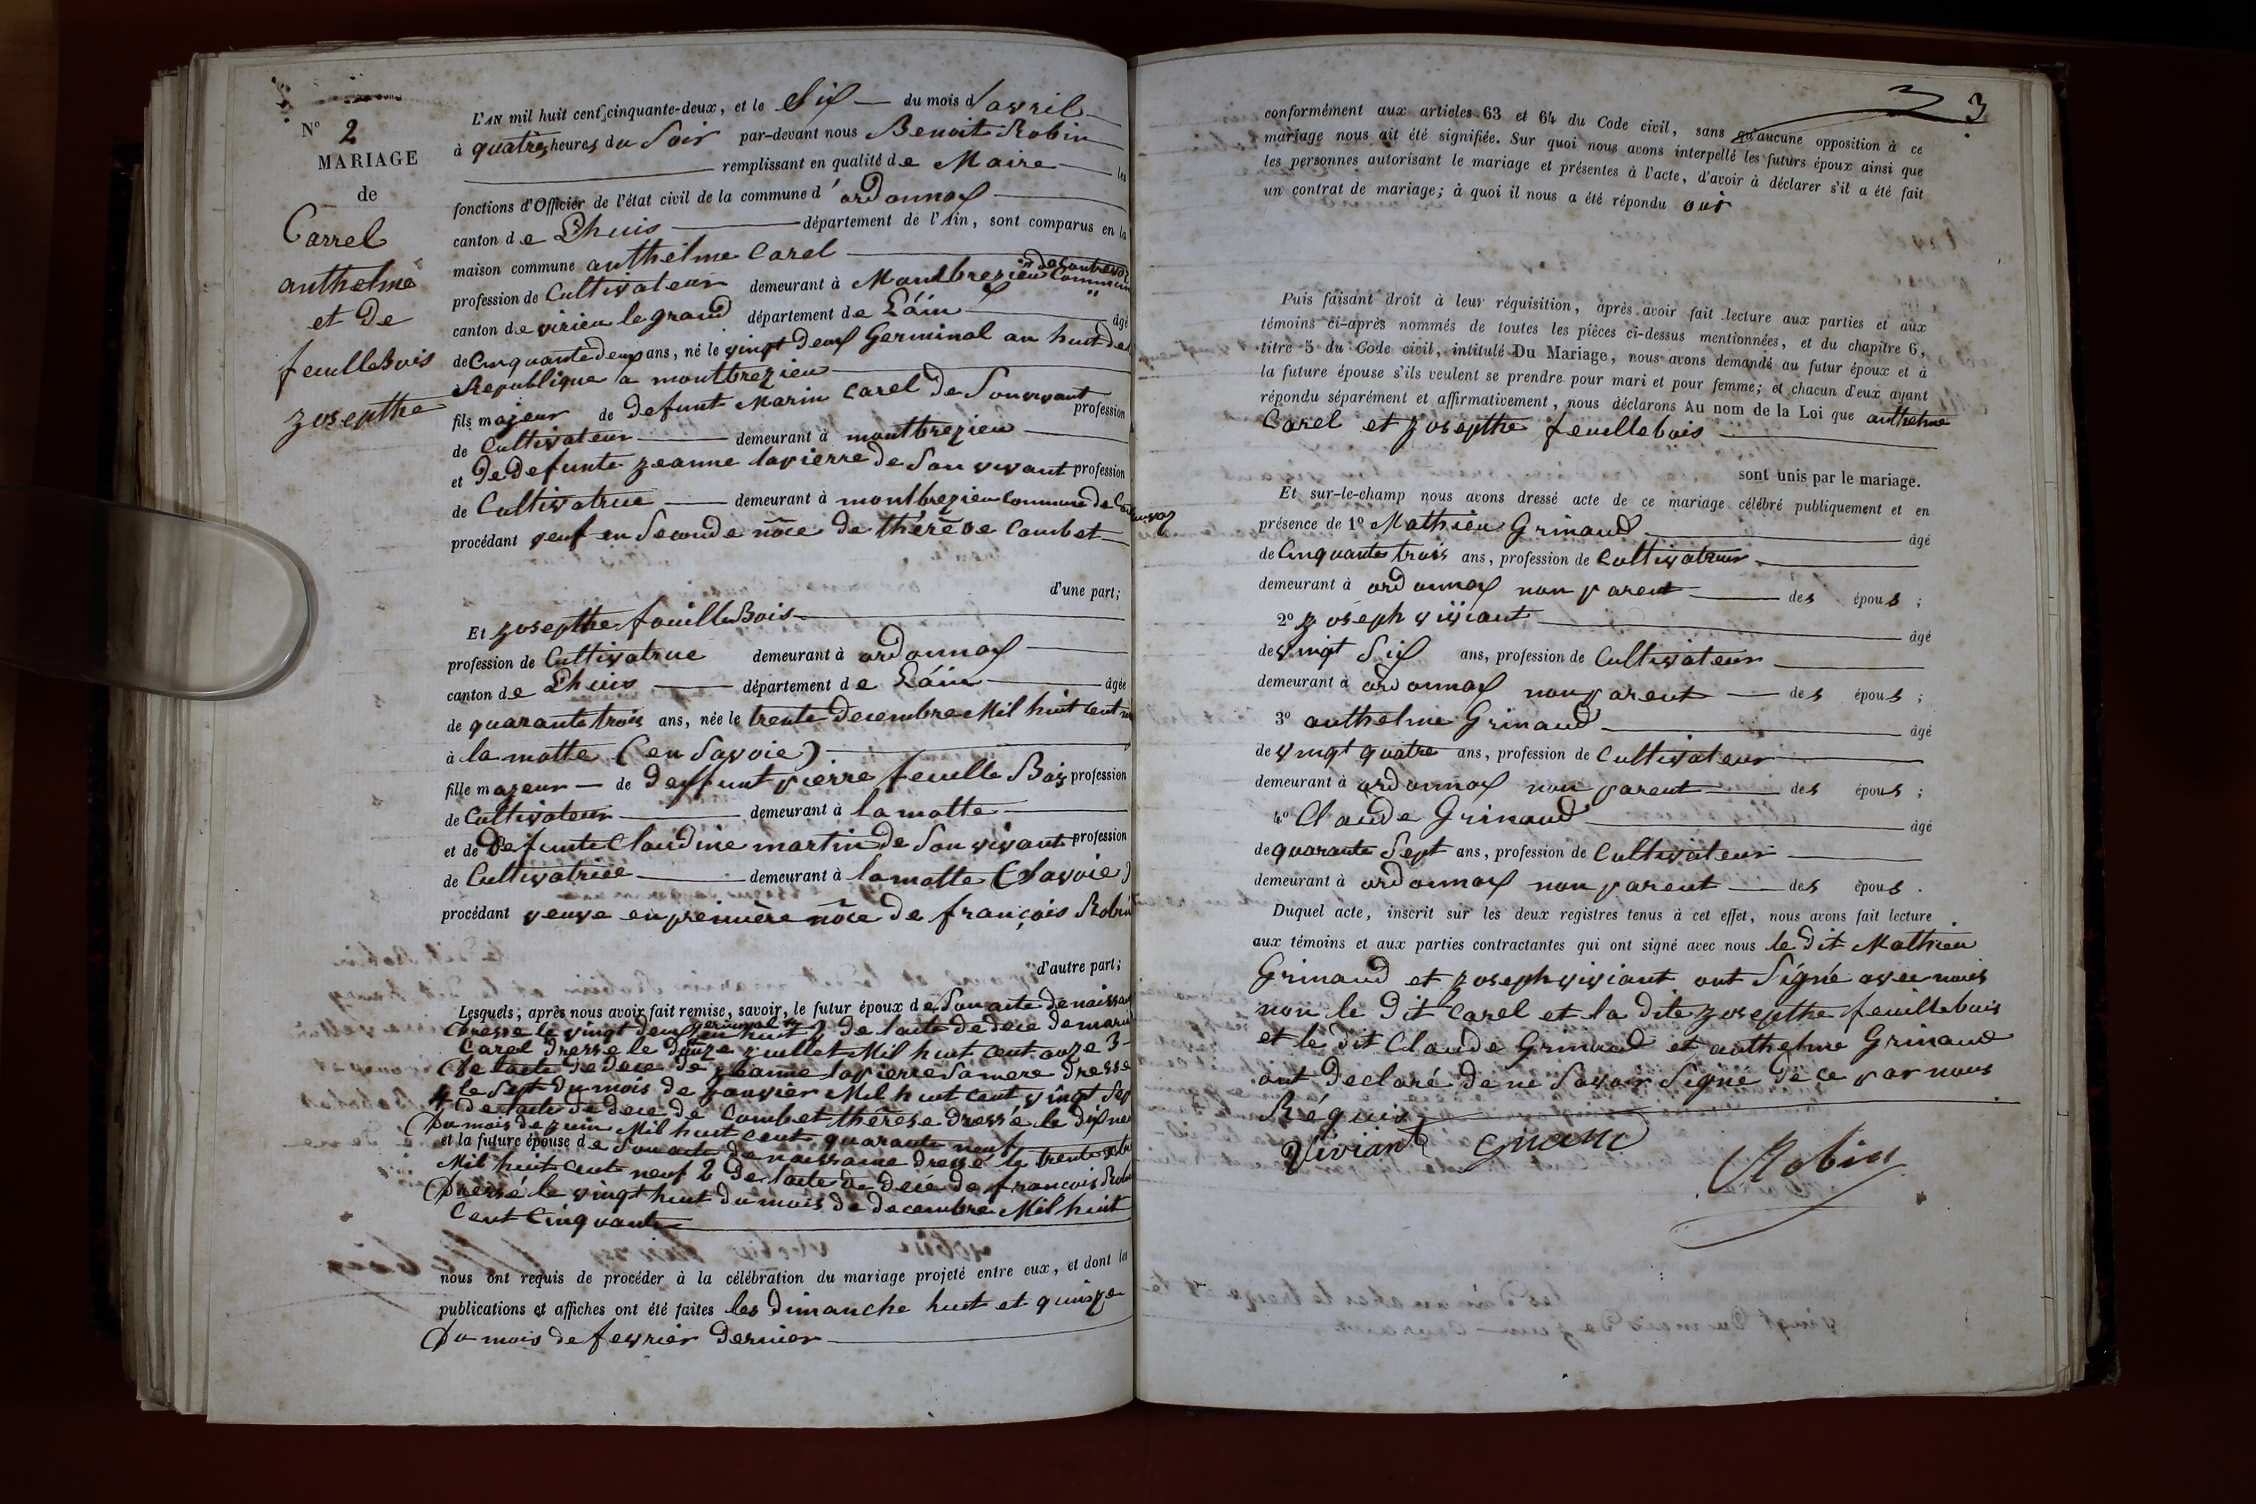 N° 2
MARIAGE
de
Carrel
anthelme
et de
feuilleBois
zosepthe
L'AN mil huit cent cinquante-deux, et le Six du mois d'avril
à quatres heures du Soir par-devant nous Benoit Robin
remplissant en qualité de Maire les
fonctions d'Officier de l'état civil de la commune d'ordonnax
canton de Lhuis département de l'Ain, sont comparus en la
maison commune anthelme Carel
profession de Cultivateur demeurant à Montbrezieu Commune de Contrevoz
canton de virieu le grand département de L'áin âgé
de Cinquante deux ans, né le vingt deux Germinal an huit de la
Republique a montbrezieu
fils majeur de defunt Marin Carel de Son vivant profession
de Cultivateur demeurant à montbrezieu
et de defunte zeanne lapierre de Son vivant profession
de Cultivatrice demeurant à montbrezieu commune de Contrevoz
procédant veuf en Seconde nôce de thérèse Combet
d'une part;
Et zosepthe feuilleBois
profession de Cultivatrice demeurant à ordonnax
canton de Lhuis département de L'áin âgée
de quarante trois ans, née le trente decembre Mil huit cent neuf
à la motte (en Savoie)
fille mazeur de deffunt pierre feuille Bois profession
de Cultivateur demeurant à la motte
et de Defunte Claudine martin de Son vivant profession
de Cultivatrice demeurant à la motte (Savoie)
procédant veuve en première nôce de françois Robin
d'autre part;
Lesquels; après nous avoir fait remise, savoir, le futur époux de Son acte de naissance
Dressé le vingt deux germinal an huit 2 de lacte de dece de marin
Carel dressé le douze zuillet Mil huit cent onze 3
De lacte de dece de zeanne lapierre Sa mere dressé
le Sept du mois de zanvier Mil huit cent vingt Sept
4 de lacte de dece de Combet thérèse dressé le dix neuf
Du mois de zuin Mil huit cent quarante neuf
et la future épouse de Son acte de naissance dressé le trente xbre
Mil huit cent neuf 2 De lacte de dece de francois Robin
Dressé le vingt huit du mois de decembre Mil huit
Cent Cinquante
nous ont requis de procéder à la célébration du mariage projeté entre eux, et dont les
publications et affiches ont été faites les dimanche huit et quinze
Du mois de fevrier dernier
3
conformément aux articles 63 et 64 du Code civil, sans qu'aucune opposition à ce
mariage nous ait été signifiée. Sur quoi nous avons interpellé les futurs époux ainsi que
les personnes autorisant le mariage et présentes à l'acte, d'avoir à déclarer s'il a été fait
un contrat de mariage; à quoi il nous a été répondu oui
Puis faisant droit à leur réquisition, après avoir fait lecture aux parties et aux
témoins ci-après nommés de toutes les pièces ci-dessus mentionnées, et du chapitre 6,
titre 5 du Code civil, intitulé Du Mariage, nous avons demandé au futur époux et à
la future épouse s'ils veulent se prendre pour mari et pour femme; et chacun d'eux ayant
répondu séparément et affirmativement, nous déclarons Au nom de la Loi que anthelme
Carel et zosepthe feuillebois
sont unis par le mariage.
Et sur-le-champ nous avons dressé acte de ce mariage célébré publiquement et en
présence de 1° Mathieu Grinand âgé
de Cinquante trois ans, profession de Cultivateur
demeurant à ordonnax non parent des épous ;
2° zoseph viviant âgé
de vingt Six ans, profession de Cultivateur
demeurant à ordonnax non parent des épous ;
3° anthelme Grinand âgé
de vingt quatre ans, profession de Cultivateur
demeurant à ordonnax non parent des épous ;
4° Claude Grinand âgé
de quarante Sept ans, profession de Cultivateur
demeurant à ordonnax non parent des épous .
Duquel acte, inscrit sur les deux registres tenus à cet effet, nous avons fait lecture
aux témoins et aux parties contractantes qui ont signé avec nous le dit Mathieu
Grinand et zoseph viviant ont Signé avec nous
non le dit Carel et la dite zosepthe feuillebois
et le dit Claude Grinand et anthelme Grinand
ont declaré de ne Savoir Signé de ce par nous
Réquis
Viviant Robin